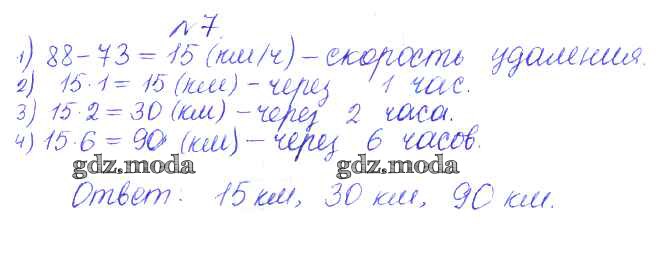 №7.
1) 88-73=15 (км/ч) - скорость удаления.
2) 15·1=15 (км) - через 1 час.
3) 15·2=30 (км) - через 2 часа.
4) 15·6=90 (км) - через 6 часов.
gdz.moda gdz.moda
Ответ: 15 км, 30 км, 90 км.